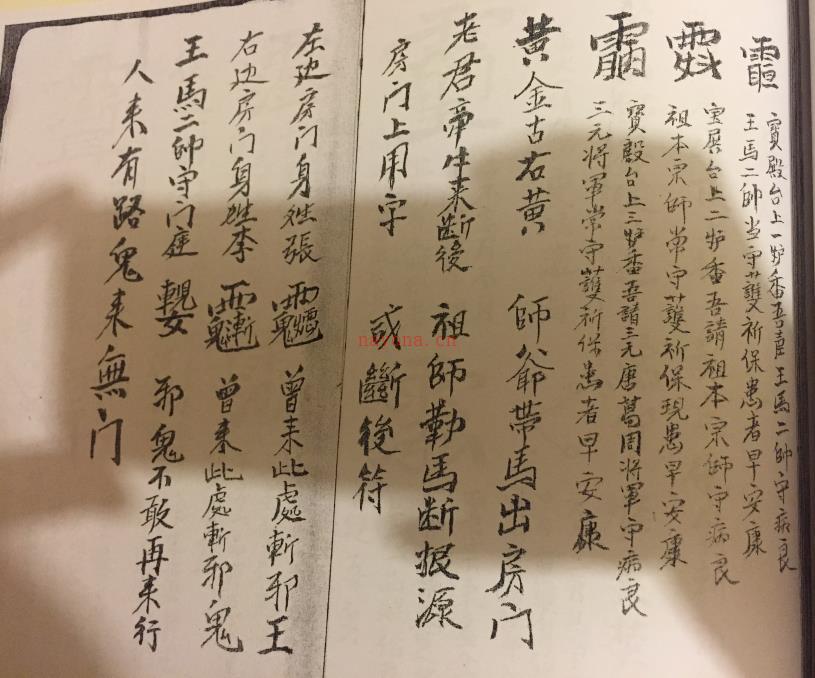 寶殿台上一炉香吾請王馬二帥守病良
王馬二帥当守護祈保患者早安康
宝展台上二炉香吾請祖本宗師守病良
祖本宗師常守護祈保現患早安康
寶殿台上三炉香吾請三元唐葛周將軍守病良
三元將軍常守護祈保患者早安康
黄金古右黄 師爺帶馬出房门
老君帝生来断後 祖師勒馬断根源
房门上用字 或斷後符
左边房门身姓張 曾来此處斬邪王
右边房门身姓李 曾来此處斬邪鬼
王馬二帥守门庭 邪鬼不敢再来行
人来有路鬼来無门
nayona.cn